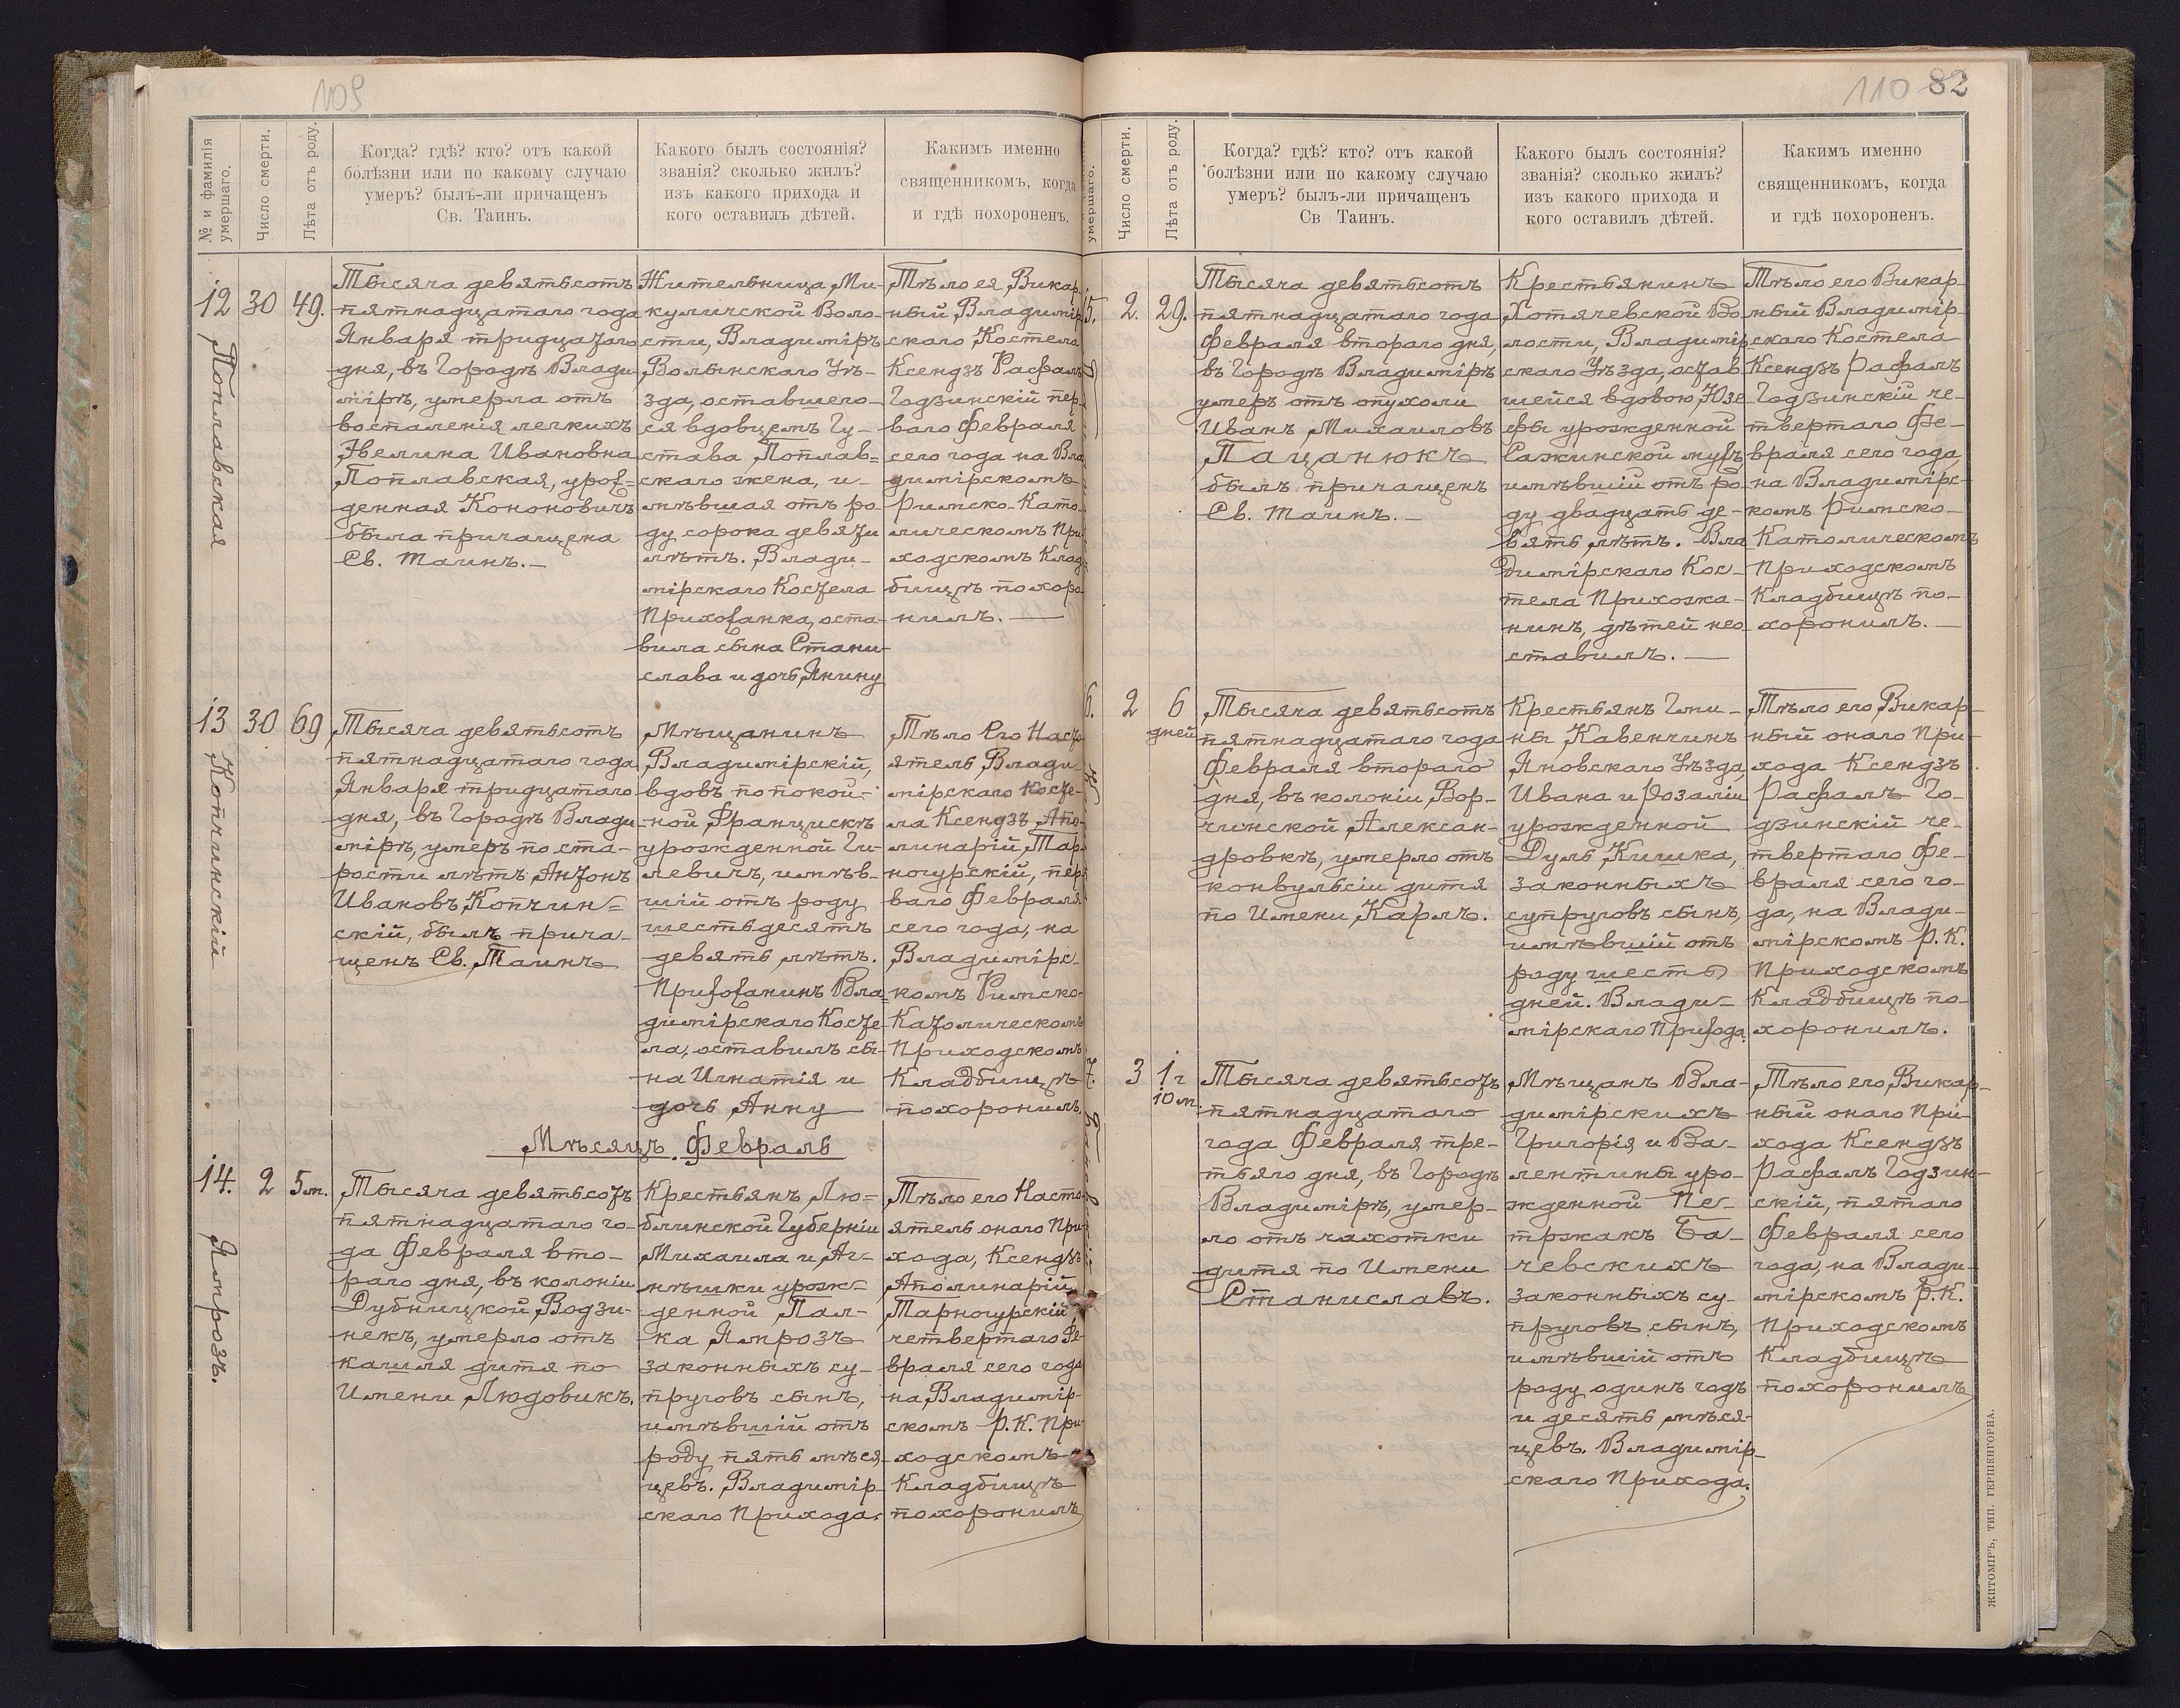 109
№ и фамилія умершаго.
Число смерти.
Лѣта отъ роду.
Когда? гдѣ? кто? отъ какой
болѣзни или по какому случаю
умеръ? былъ-ли причащенъ
Св. Таинъ.
Какого былъ состоянія?
званія? сколько жилъ?
изъ какого прихода и
кого оставилъ дѣтей.
Какимъ именно
священникомъ, когда
и гдѣ похороненъ.
12
Поплавская
30
49.
Тысяча девятьсотъ
пятнадцатаго года
Января тридцатаго
дня, въ Городѣ Влади-
мірѣ, умерла отъ
воспаленія легкихъ
Эвелина Ивановна
Поплавская, урож-
денная Кононовичъ
была причащена
Св. Таинъ.—
Жительница Ми-
куличской Воло-
сти, Владиміръ
Волынскаго Уѣ-
зда, оставшего-
ся вдовцемъ Гу-
става Поплав=
скаго жена, и-
мѣвшая отъ ро
ду сорока девяти
лѣтъ. Влади-
мірскаго Костела
Прихожанка, оста-
вила сына Стани-
слава и дочь Янину
Тѣло ея Викар-
ный Владимір
скаго Костела
Ксендзъ Рафалъ
Годзинскій пер-
ваго Февраля
сего года на Вла
димірскомъ
Римско-Като-
лическомъ При
ходскомъ Клад
бищѣ похоро-
нилъ.—
13
Копчинскій
30
69
Тысяча девятьсотъ
пятнадцатаго года
Января тридцатаго
дня, въ Городѣ Влади-
мірѣ, умеръ по ста-
рости лѣтъ Антонъ
Ивановъ Копчин=
скій, былъ прича-
щенъ Св. Таинъ
Мѣщанинъ
Владимірскій,
вдовъ по покой-
ной Францискѣ
урожденной Ги-
левичъ, имѣв-
шій отъ роду
шестьдесятъ
девять лѣтъ.
Прихожанинъ Вла=
димірскаго Косте-
ла, оставилъ сы-
на Игнатія и
дочь Анну
Тѣло Его Насто
ятель Влади-
мірскаго Косте-
ла Ксендзъ Апо-
линарій Тар-
ногурскій, пер
ваго Февраля
сего года, на
Владимірс-
комъ Римско-
Католическомъ
Приходскомъ
Кладбищѣ
похоронилъ.
Мѣсяцъ Февраль
14.
Ямрозъ.
2
5 м.
Тысяча девятьсотъ
пятнадцатаго го-
да Февраля вто-
раго дня, въ колоніи
Дубницкой Водзи-
некъ, умерло отъ
кашля дитя по
Имени Людовикъ.
Крестьянъ Лю=
блинской Губерніи
Михаила и Аг-
нѣшки урож=
денной Пал-
ка Ямрозъ
законныхъ су-
пруговъ сынъ,
имѣвшій отъ
роду пять мѣся-
цевъ. Владимір-
скаго Прихода.
Тѣло его Насто-
ятель онаго При
хода, Ксендзъ
Аполинарій
Тарногурскій
четвертаго Фе-
враля сего года
на Владимір-
скомъ Р. К. При-
ходскомъ
Кладбищѣ
похоронилъ
110 82
умершаго.
Число смерти.
Лѣта отъ роду.
Когда? гдѣ? кто? отъ какой
болѣзни или по какому случаю
умеръ? былъ-ли причащенъ
Св Таинъ.
Какого былъ состоянія?
званія? сколько жилъ?
изъ какого прихода и
кого оставилъ дѣтей.
Какимъ именно
священникомъ, когда
и гдѣ похороненъ.
5.
2.
29.
Тысяча девятьсотъ
пятнадцатаго года
Февраля втораго дня,
въ Городѣ Владимірѣ
умеръ отъ опухоли
Иванъ Михаиловъ
Пацанюкъ
былъ причащенъ
Св. Таинъ.—
Крестьянинъ
Хотячевской Во
лости, Владимір
скаго Уѣзда, остав
шейся вдовою Юзе
фы урожденной
Сажинской мужъ
имѣвшій отъ ро
ду двадцать де-
вять лѣтъ. Вла
димірскаго Кос-
тела Прихожа-
нинъ, дѣтей нео-
ставилъ.—
Тѣло его Викар-
ный Владимір-
скаго Костела
Ксендзъ Рафалъ
Годзинскій че-
твертаго Фе-
враля сего года
на Владимірс-
комъ Римско-
Католическомъ
Приходскомъ
Кладбищѣ по-
хоронилъ.—
6.
2
6 дней
Тысяча девятьсотъ
пятнадцатаго года
Февраля втораго
дня, въ колоніи Вор-
чинской Алексан-
дровкѣ, умерло отъ
конвульсіи дитя
по Имени Карлъ.
Крестьянъ Гми-
ны Кавенчинъ
Яновскаго Уѣзда,
Ивана и Розаліи
урожденной
Дуль Кишка,
законныхъ
супруговъ сынъ,
имѣвшій отъ
роду шесть
дней. Влади-
мірскаго Прихода.
Тѣло его Викар-
ный онаго При-
хода Ксендзъ
Рафалъ Го-
дзинскій че-
твертаго Фе-
враля сего го-
да, на Влади-
мірскомъ Р. К.
Приходскомъ
Кладбищѣ по-
хоронилъ.
7.
3
1 г
10 м.
Тысяча девятьсотъ
пятнадцатаго
года Февраля тре-
тьяго дня, въ Городѣ
Владимірѣ, умер-
ло отъ чахотки
дитя по Имени
Станиславъ.
Мѣщанъ Вла-
димірскихъ
Григорія и Ва-
лентины уро-
жденной Пе-
тржакъ Ба-
чевскихъ
законныхъ су-
пруговъ сынъ,
имѣвшій отъ
роду одинъ годъ
и десять мѣся-
цевъ. Владимір-
скаго Прихода.
Тѣло его Викар-
ный онаго При-
хода Ксендзъ
Рафалъ Годзин-
скій, пятаго
Февраля сего
года, на Влади-
мірскомъ Р. К.
Приходскомъ
Кладбищѣ
похоронилъ
ЖИТОМІРЪ, ТИП. ГЕРШЕНГОРНА.